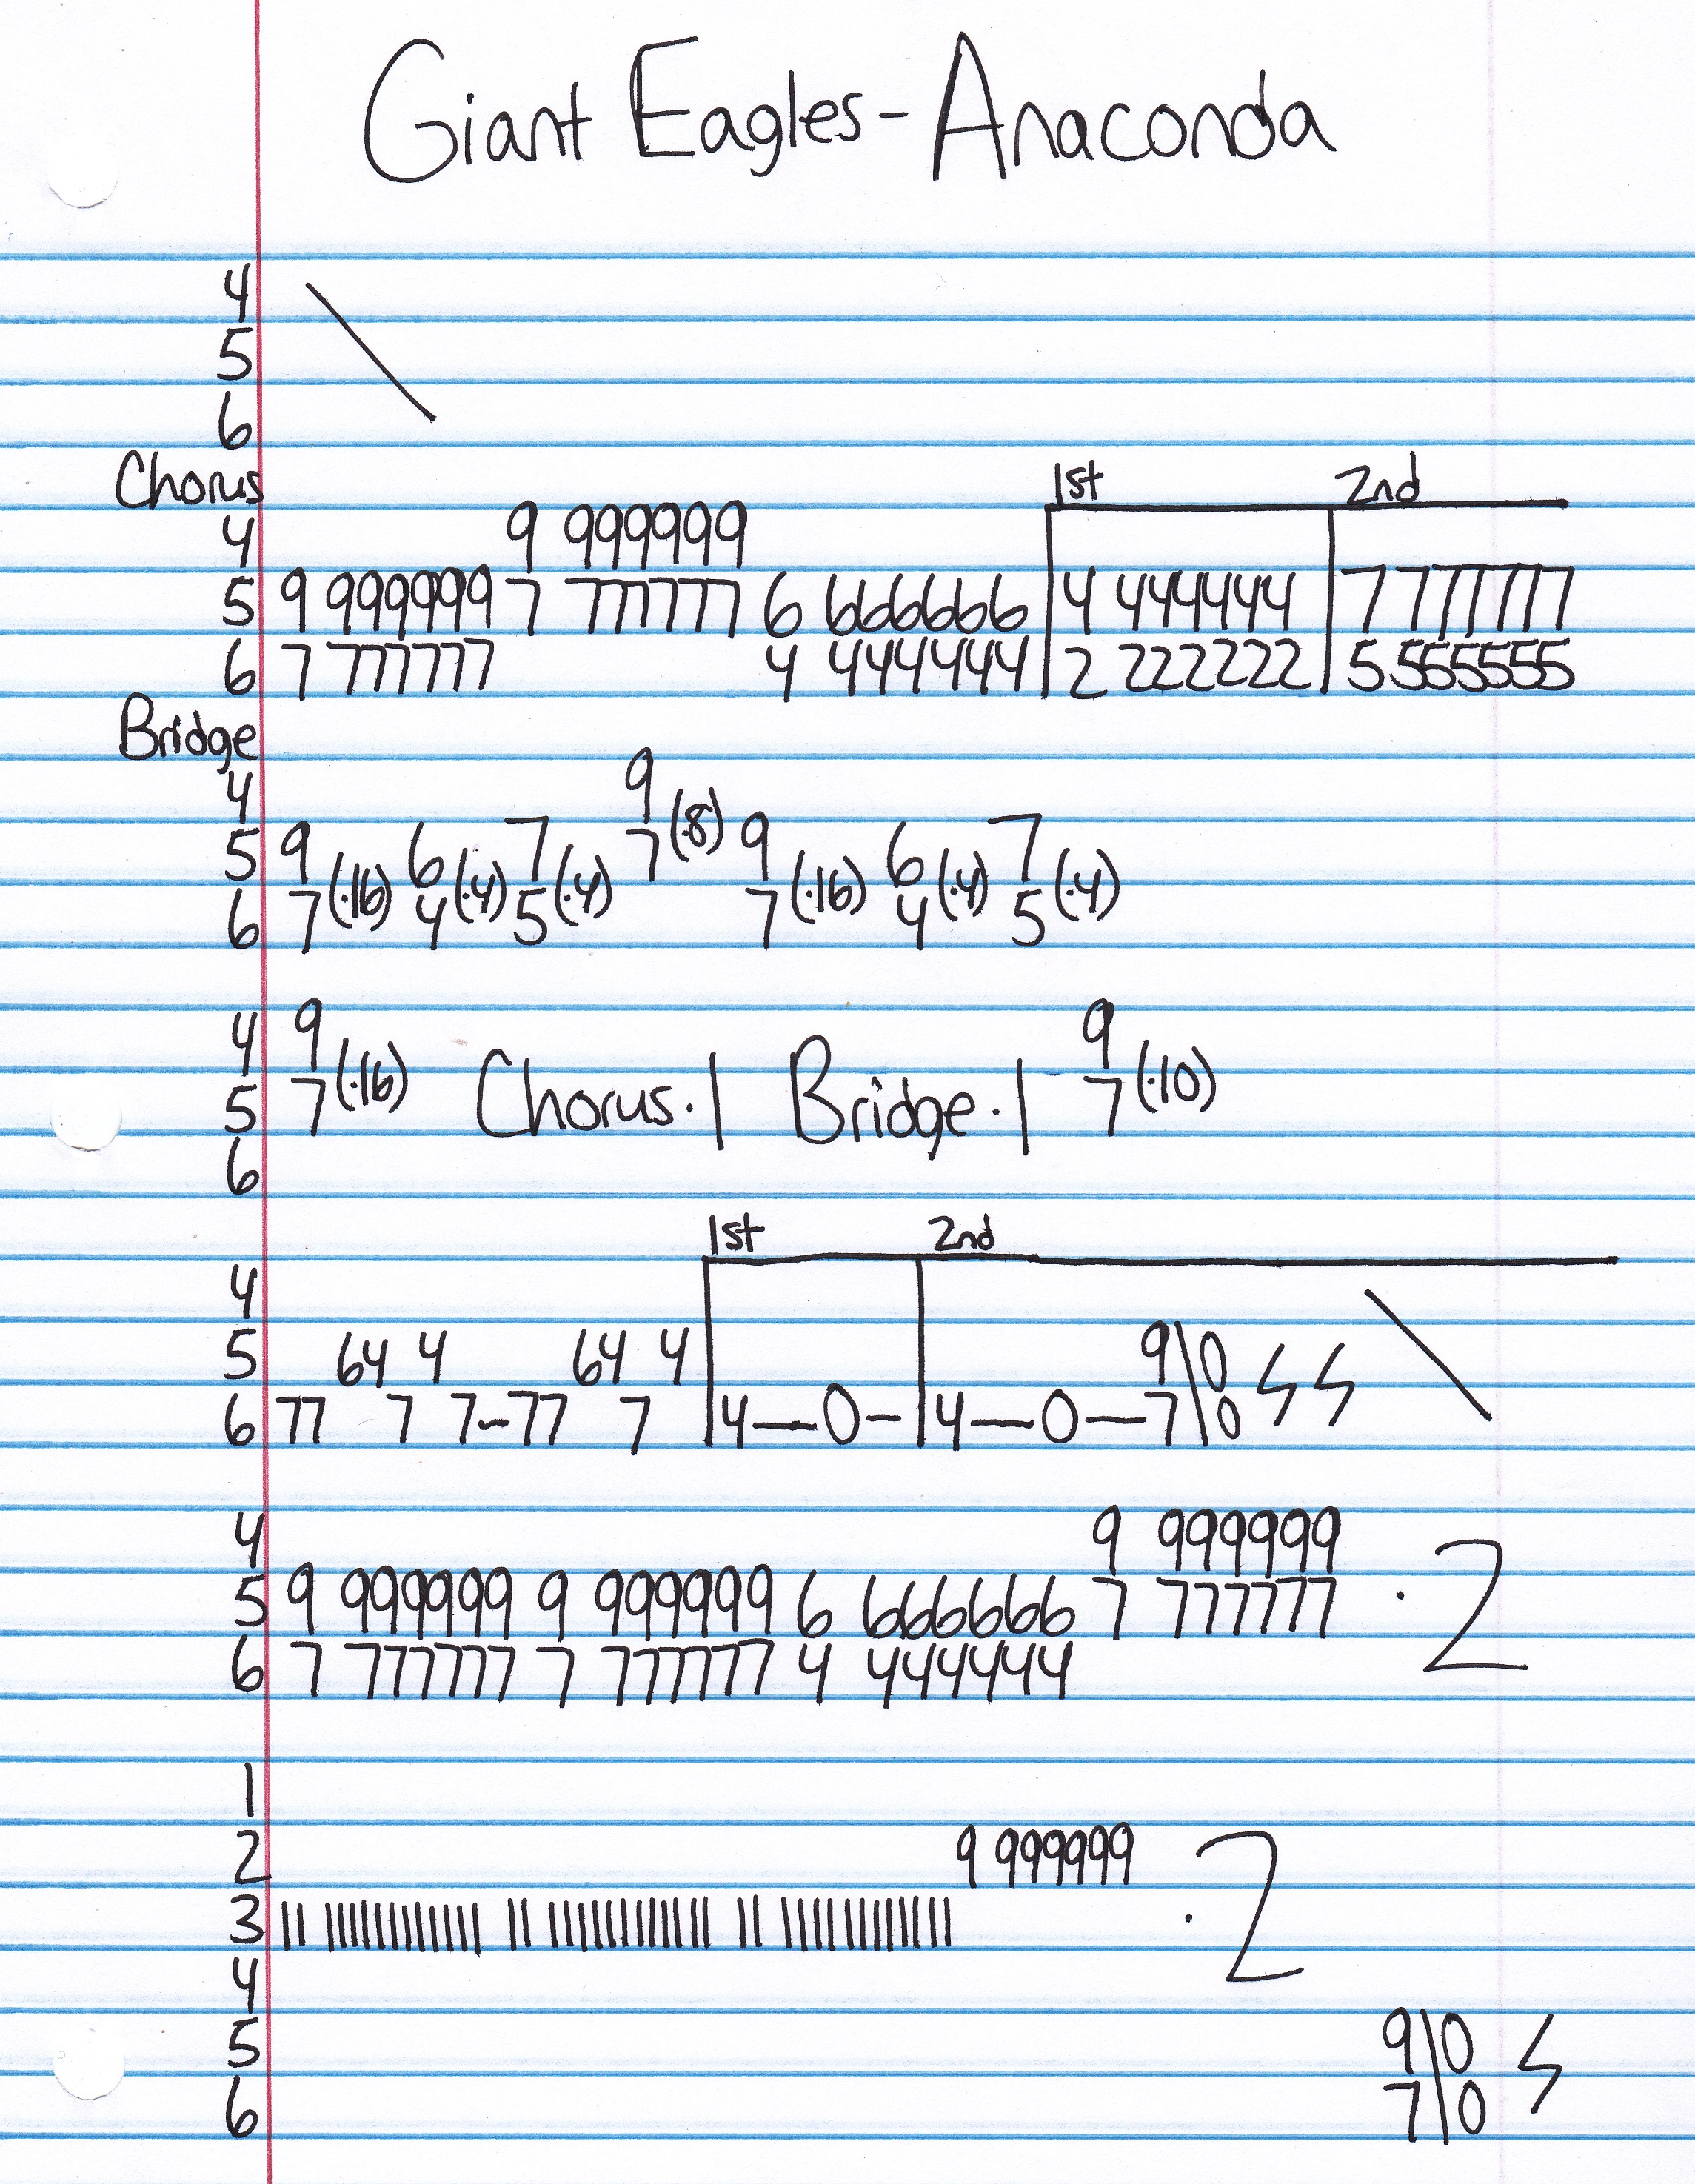 Giant Eagles - Anaconda
4 \
5
6
Chorus 1st 2nd
4 9 999999
5 9 999999 7 777777 6 666666 4 444444 7 777777
6 7 777777 4 444444 2 222222 5 555555
Bridge
4 9
5 9 6 7 7 (·8) 9 6 7
6 7 (·16) 4 (·4) 5 (·4) 7 (·16) 4 (·4) 5 (·4)
4 9 9
5 7 (·16) Chorus · 1 Bridge · 1 7 (·10)
6
1st 2nd
4
5 64 4 64 4 9\0
6 77 7 7-77 7 4—0- 4—0—7\0
4 9 999999
5 9 999999 9 999999 6 666666 7 777777 · 2
6 7 777777 7 777777 4 444444
1
2 9 999999
3 · 2
4
5 9\0
6 7\0